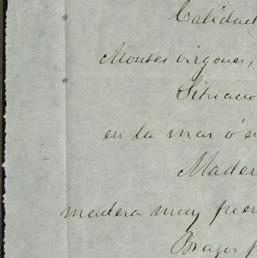 Calidad
Montes virgenes,
Situacio
en la mar ó e
Mader
madera muy fuer
Brazos